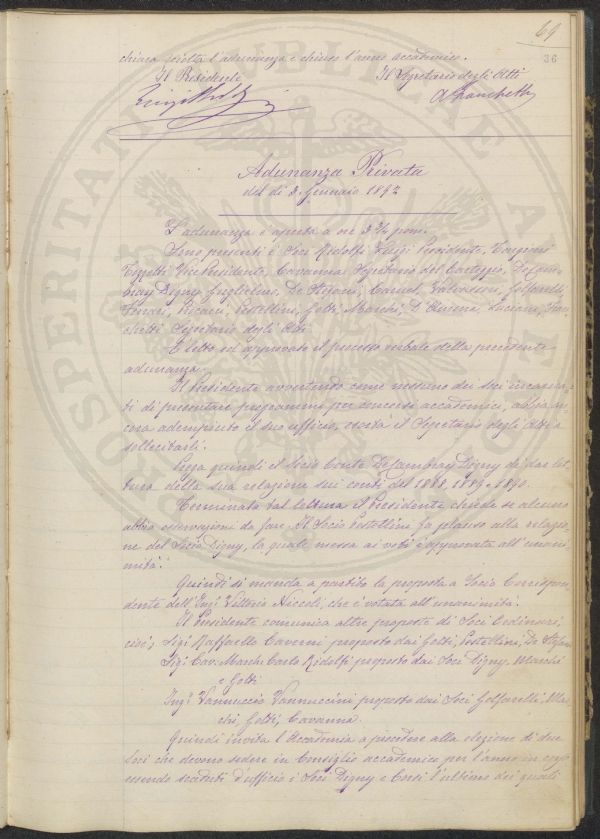 69
36
chiara sciolta l'adunanza e chiuso l'anno accademico.
Il Presidente Il Segretario degli Atti
Luigi Ridolfi A Franchetti
Adunanza Privata
del dì 3. Gennaio 1892
L'adunanza è aperta a ore 3 ¾ pom.
Sono presenti i Soci Ridolfi Luigi Presidente, Targioni
Tozzetti Vice Presidente, Cavanna Segretario del Carteggio, De Cam-
bray Digny Guglielmo, De Stefani, Caruel, Valvassori, Golfarelli,
Ferrari, Pucci, Pestellini, Gotti, Marchi, D'Ancona, Luciani, Fran-
chetti Segretario degli Atti.
È letto ed approvato il processo verbale della precedente
adunanza.
Il Presidente avvertendo come nessuno dei soci incarica-
ti di presentare programmi per concorsi accademici, abbia an-
cora adempiuto il suo ufficio, esorta il Segretario degli Atti a
sollecitarli.
Prega quindi il Socio Conte De Cambray Digny di dar let-
tura della sua relazione sui conti del 1888. 1889. 1890.
Terminata tal lettura il Presidente chiede se alcuno
abbia osservazioni da fare. Il Socio Pestellini fa plauso alla relazio-
ne del Socio Digny, la quale messa ai voti è approvata all'unani-
mità.
Quindi si manda a partito la proposta a Socio Corrispon-
dente dell'Ingr Vittorio Niccoli, che è votata all'unanimità.
Il Presidente comunica altre proposte di Soci Ordinari,
cioè, Sigr Raffaello Caverni proposto dai Gotti, Pestellini, De Stefani
Sigr Cav: March: Carlo Ridolfi proposto dai Soci Digny, Marchi
e Gotti
Ingr Vannuccio Vannuccini proposto dai Soci Golfarelli, Mar-
chi, Gotti, Cavanna.
Quindi invita l'Accademia a procedere alla elezione di due
Soci che devono sedere in Consiglio accademico per l'anno in corso
essendo scaduti d'ufficio i Soci Digny e Corsi l'ultimo dei quali